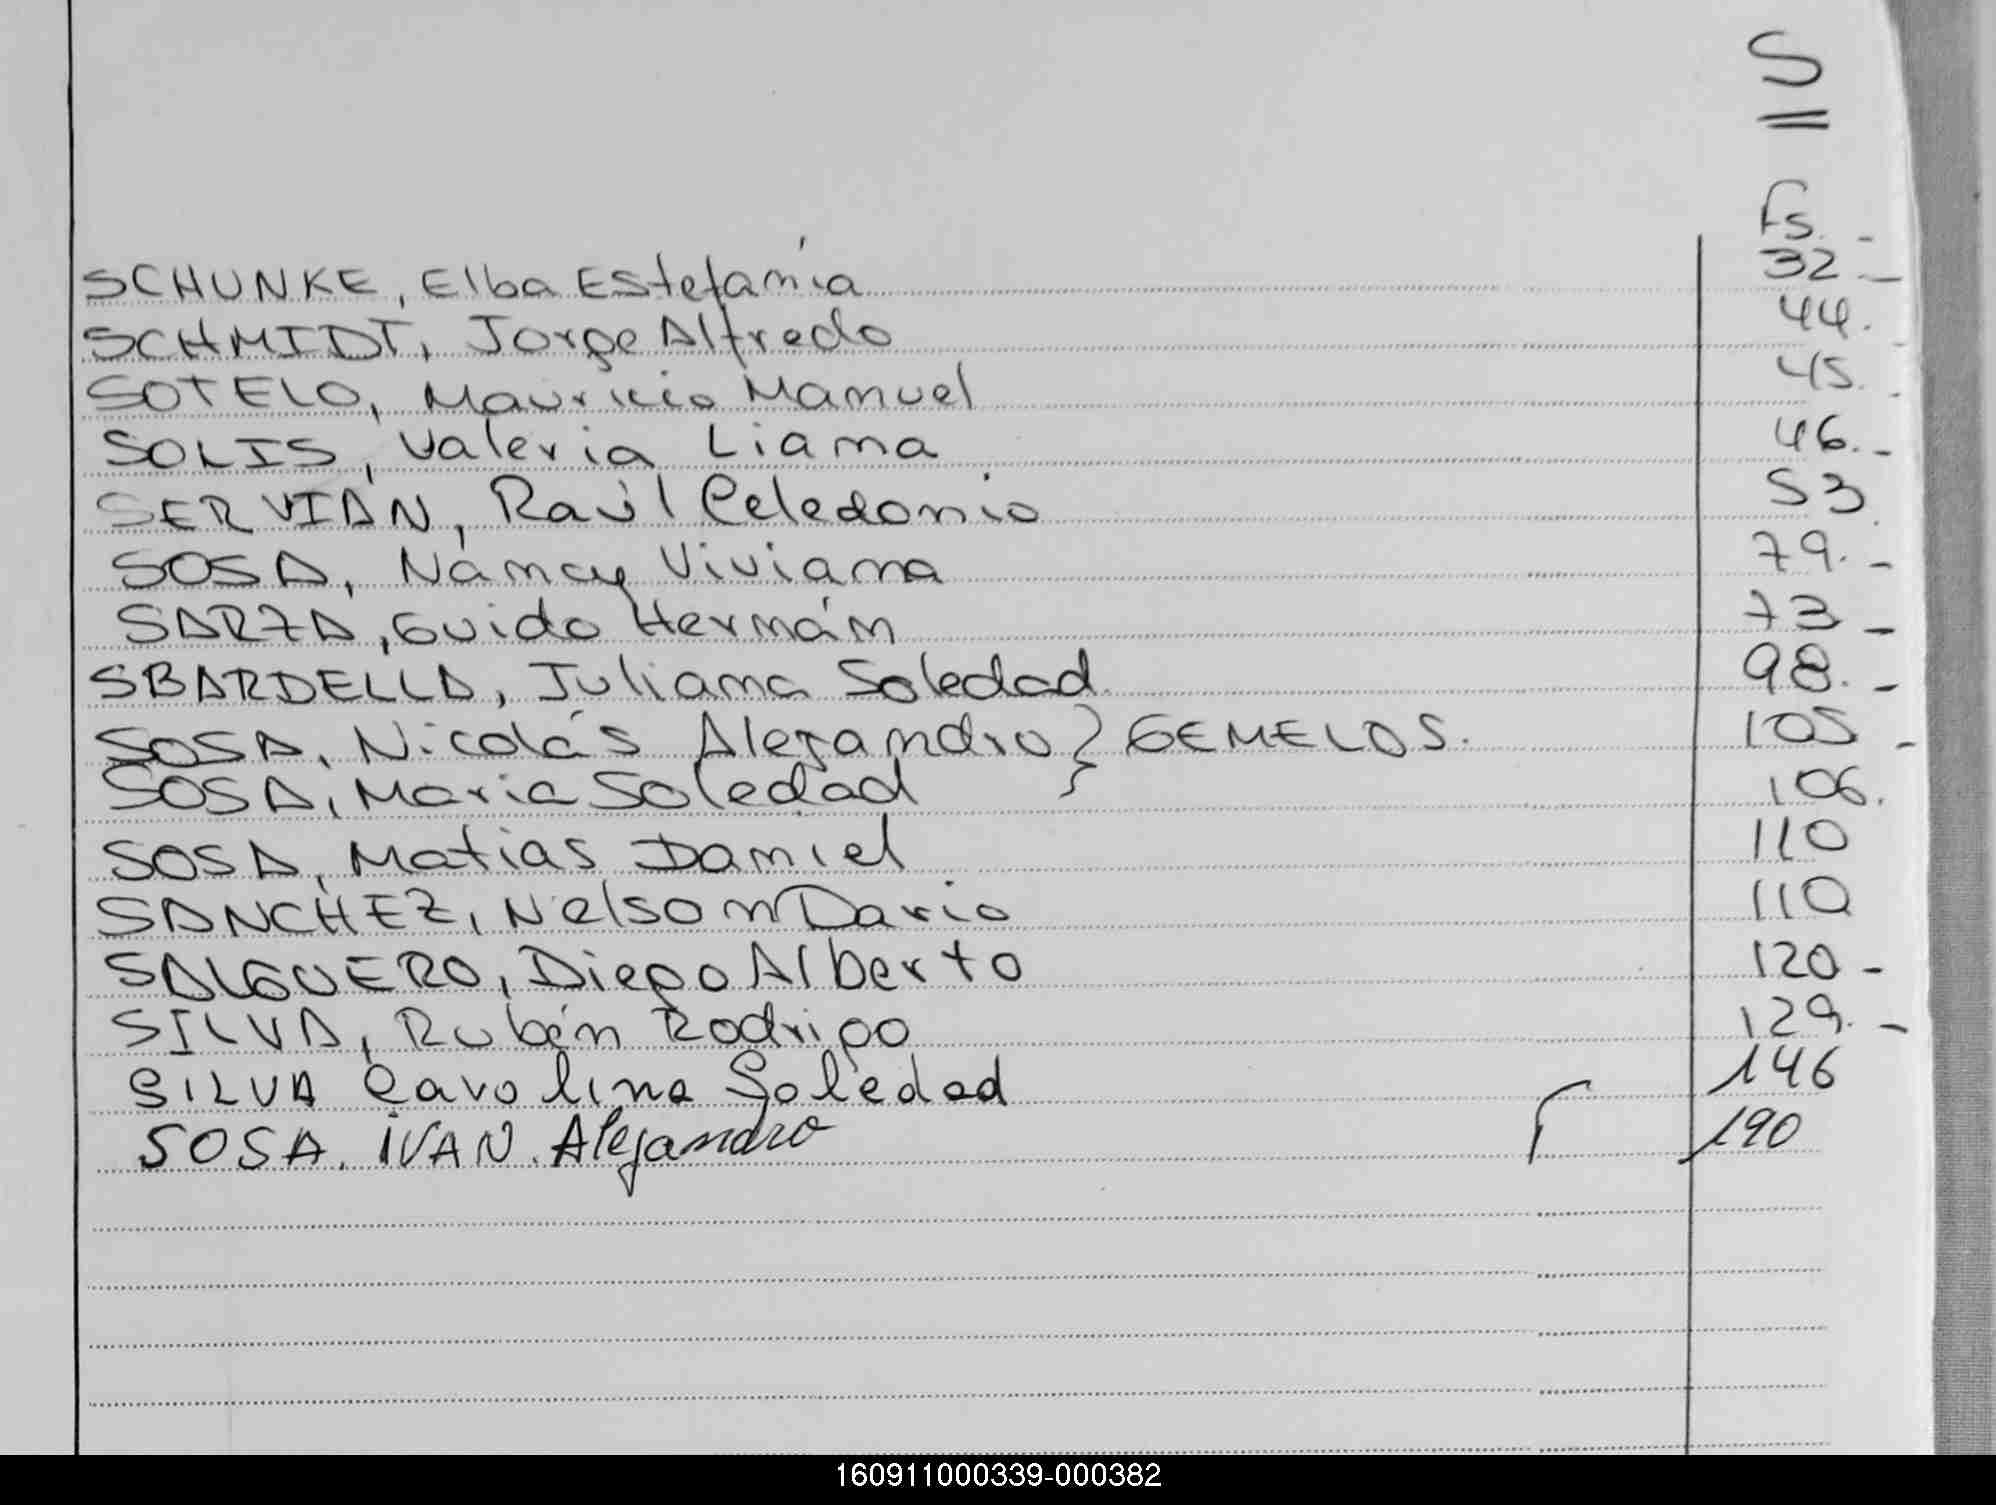 S
Fs. -
SCHUNKE, Elba Estefanía 32 -
SCHMIDT, Jorge Alfredo 44.
SOTELO, Mauricio Manuel 45.
SOLIS, Valeria Liana 46. -
SERVIAN, Raúl Celedonio 53
SOSA, Nancy Viviana 79. -
SARZA, Guido Hernán 73 -
SBARDELLA, Juliana Soledad 98. -
SOSA, Nicolás Alejandro } GEMELOS. 105 -
SOSA, Maria Soledad 106.
SOSA, Matias Daniel 110
SANCHEZ, Nelson Dario 110
SALGUERO, Diego Alberto 120 -
SILVA, Rubén Rodrigo 129. -
SILVA Carolina Soledad 146
SOSA. IVAN. Alejandro 190
160911000339-000382